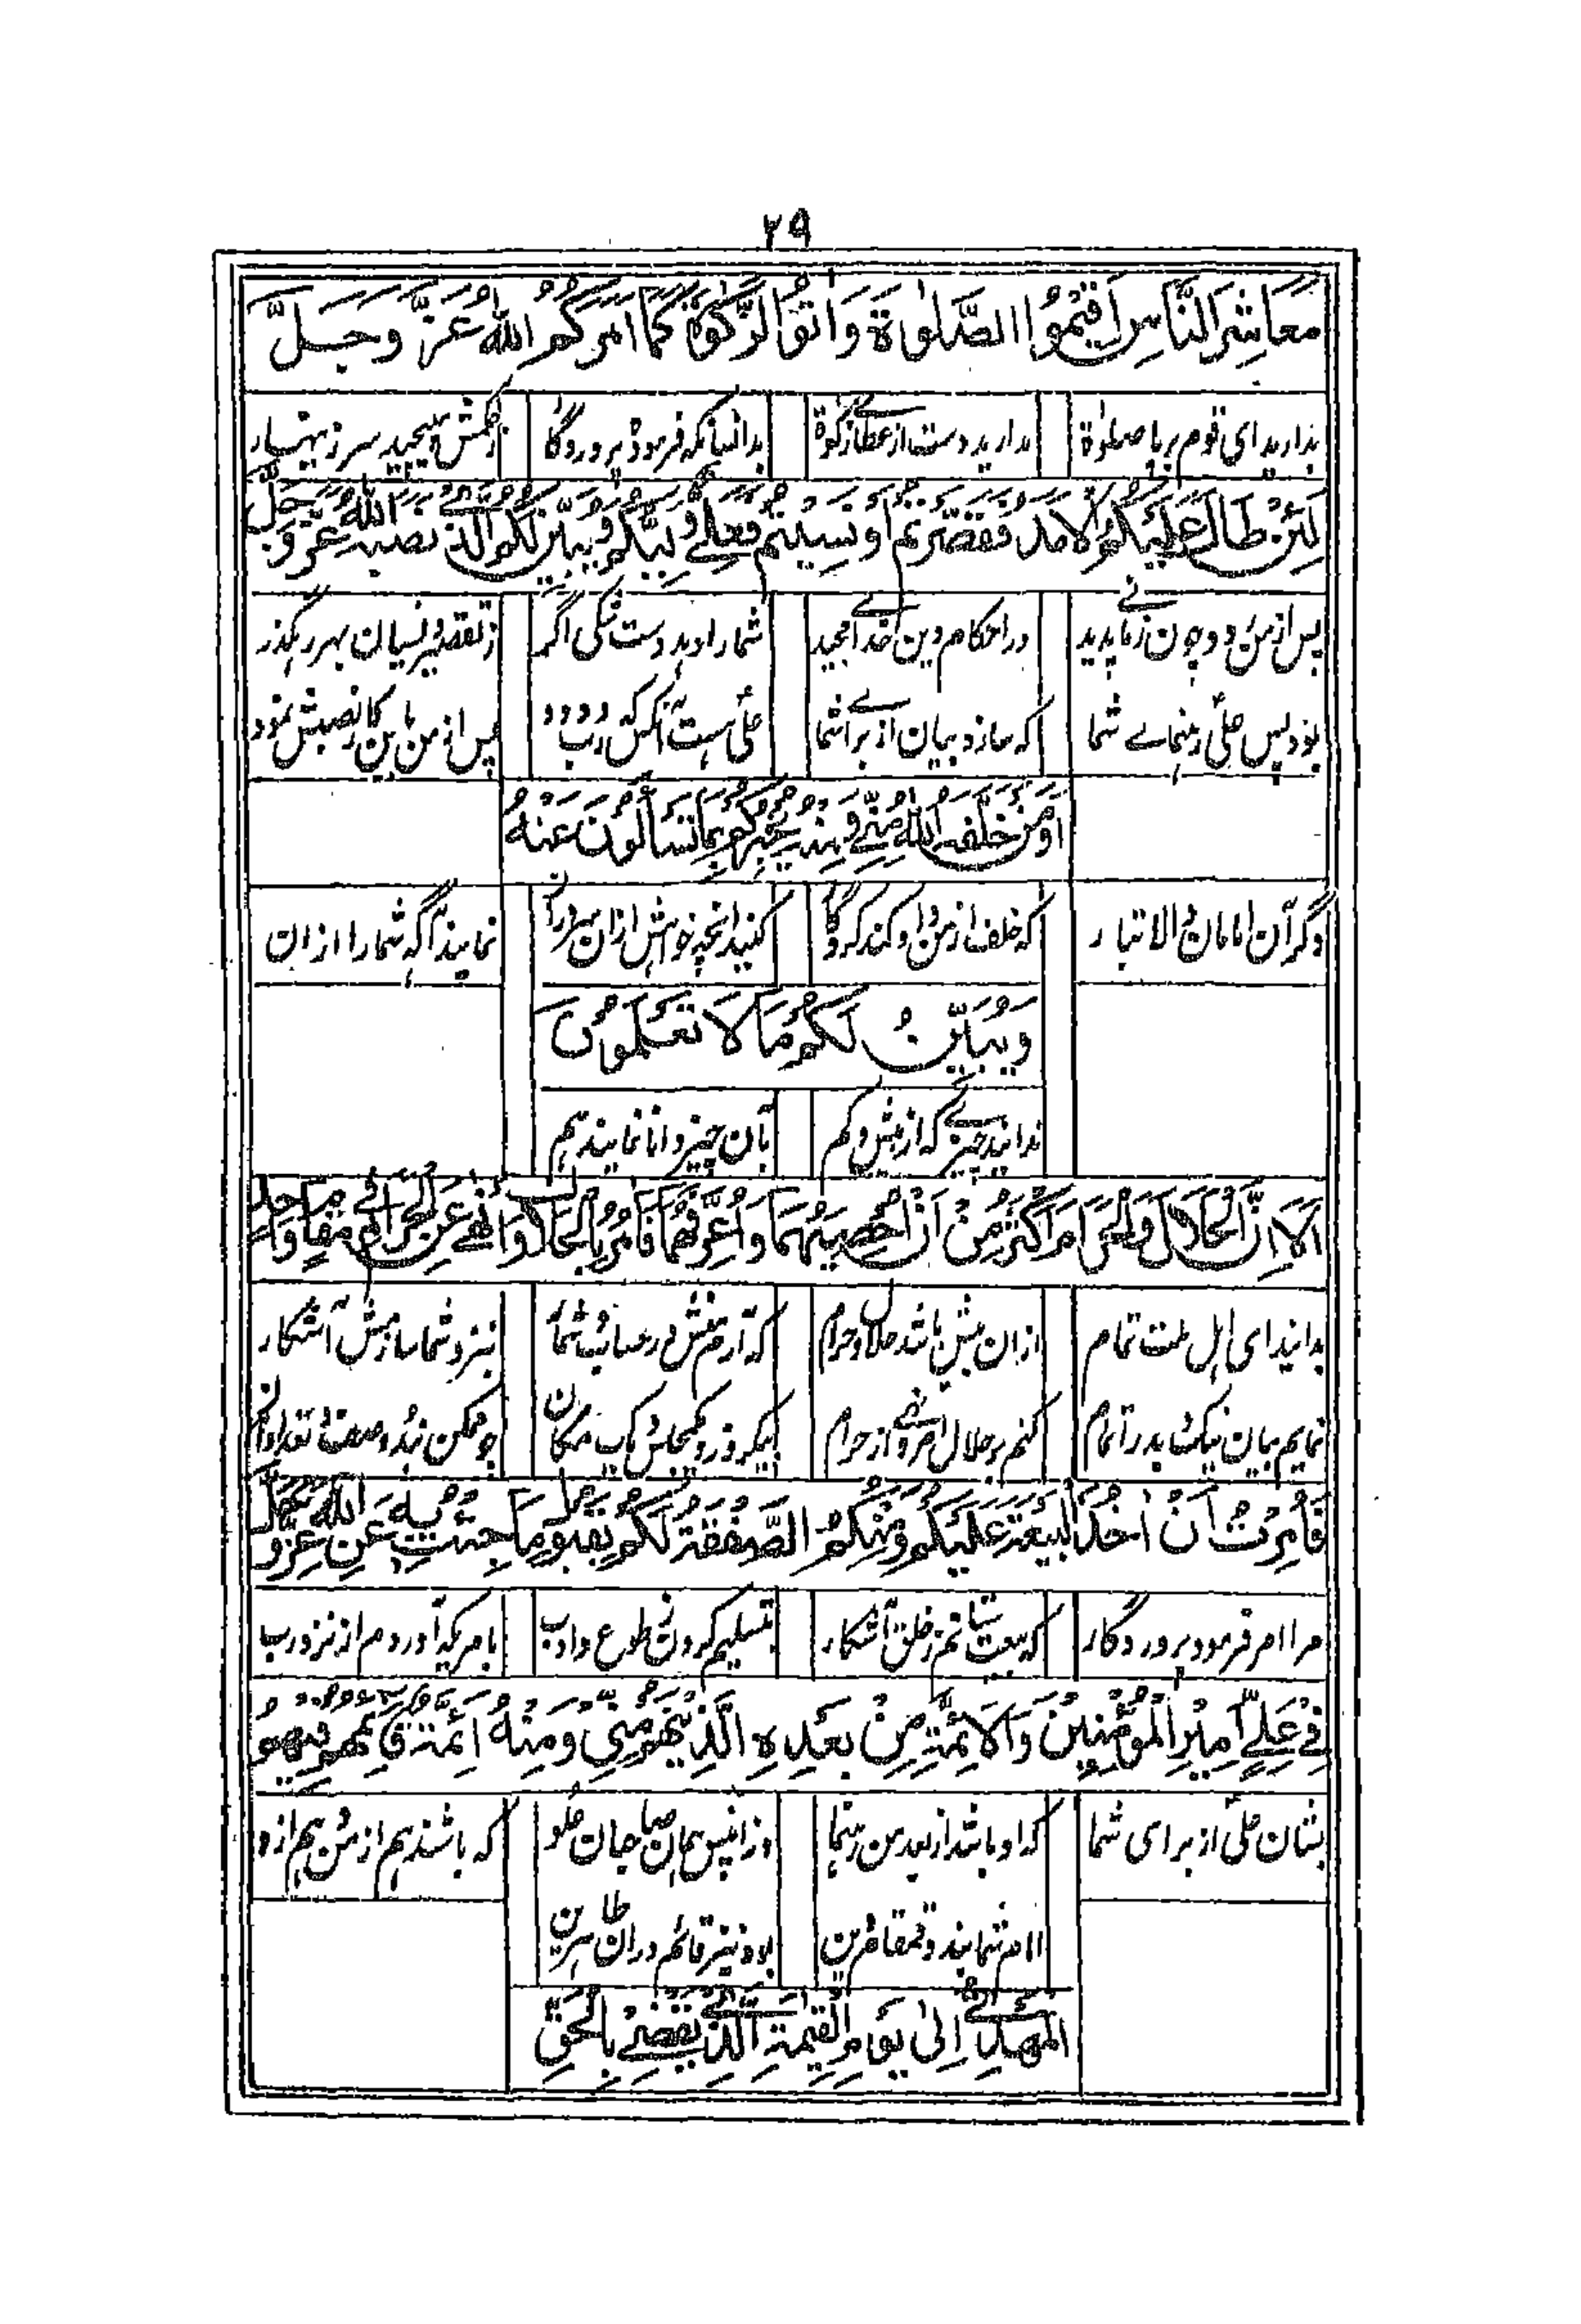 ۲۹
مَعَاشِرَ النَّاسِ اَقِيْمُوا الصَّلٰوةَ وَاٰتُوا الزَّكٰوةَ كَمَا اَمَرَكُمُ اللهُ عَزَّ وَجَلَّ
بدارید ای قوم بر پا صلوٰة ندارید دست از عطای زکوٰة بدانسانکه فرمود پروردگار ز حکمش مپیچید سر زینهار
لَئِنْ طَالَ عَلَيْكُمُ الْاَمَدُ فَقَصَّرْتُمْ اَوْ نَسِيْتُمْ فَعَلِيٌّ وَلِيُّكُمْ وَيُبَيِّنُ لَكُمُ الَّذِيْ نَصَبَهُ اللهُ عَزَّ وَجَلَّ
پس از من در احکام دین خدای مجید شما را دهد دست نیگی اگر ز تقصیر و نسیان بهر رهگذر
بود پس علی رهنمای شما که سازد بیان از برای شما علی هست آنکس که رب ودود پس از من باین کار نصبش نمود
اَوْ مَنْ خَلَّفَهُ اللهُ مِنِّيْ وَمِنْهُ يُخْبِرُكُمْ بِمَا تَسْاَلُوْنَ عَنْهُ
وگر آن امامان والا تبار که خلف از من و او کند کردگار کنید آنچه خواهش ازان سروران نمایند آگه شما را ازان
وَيُبَيِّنُ لَكُمْ مَا لَا تَعْلَمُوْنَ
ندانید چیزی که از بیش و کم بآن چیز دانا نمایند هم
اَلَا اِنَّ الْحَلَالَ وَالْحَرَامَ اَكْثَرُ مِنْ اَنْ اُحْصِيَهُمَا وَاُعَرِّفَهُمَا فَاٰمُرُ بِالْحَلَالِ وَاَنْهٰى عَنِ الْحَرَامِ فِيْ مَقَامٍ وَاحِدٍ
بدانید ای اهل ملت تمام ازان بیش باشد حلال و حرام که آرمش در حساب شما بنزد شما سازمش آشکار
نمایم بیان نیک و بد را تمام کنم بر حلال امر و نهی از حرام بیکروز و یکمجلس و یک مکان چو ممکن نبد وصف و تعداد آن
فَاُمِرْتُ اَنْ اٰخُذَ الْبَيْعَةَ عَلَيْكُمْ وَمِنْكُمْ الصَّفْقَةَ لَكُمْ بِقَبُوْلِ مَا جِئْتُ بِهِ عَنِ اللهِ عَزَّ وَجَلَّ
مرا امر فرمود پروردگار که بیعت ستانم ز خلق آشکار بتسلیم کردن ز طوع و ادب بامریکه آوردم از نزد رب
فِيْ عَلِيٍّ اَمِيْرِ الْمُؤْمِنِيْنَ وَالْاَئِمَّةِ مِنْ بَعْدِهِ الَّذِيْنَ هُمْ مِنِّيْ وَمِنْهُ اَئِمَّةٌ قَائِمُهُمْ فِيْهِمُ
بشان علی از برای شما که او باشد از بعد من رهنما وزان پس همان صاحبان علو که باشند هم از من و هم ازو
بود نیز قائم دران طاهرین
الْمَهْدِيُّ اِلٰى يَوْمِ الْقِيٰمَةِ الَّذِيْ يَقْضِيْ بِالْحَقِّ